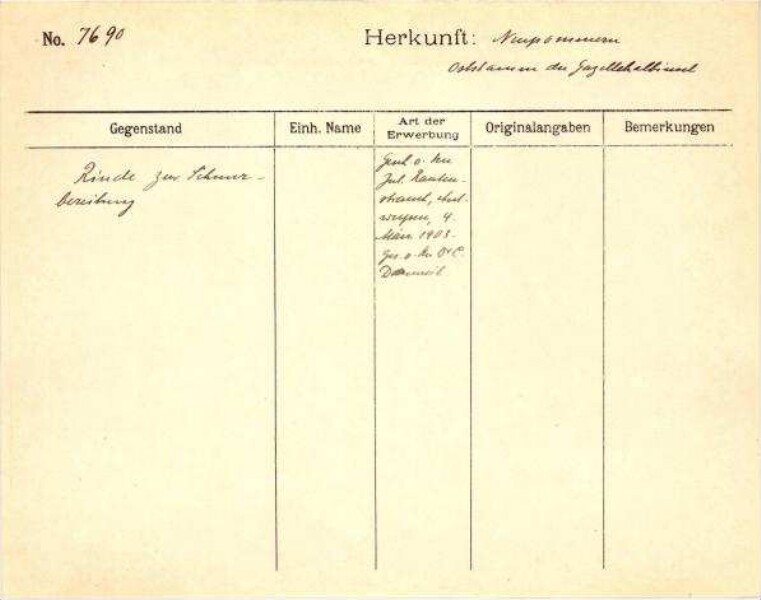 No. 7690
Herkunft: Neupommern
Oststamm der Gazellehalbinsel
Gegenstand
Einh. Name
Art der
Erwerbung
Originalangaben
Bemerkungen
Rinde zur Schnur-
bereitung
Gesch. v. Hrn
Jul. Rauten-
strauch, Ant-
werpen, 4.
März 1903.
Ges. v. Hrn